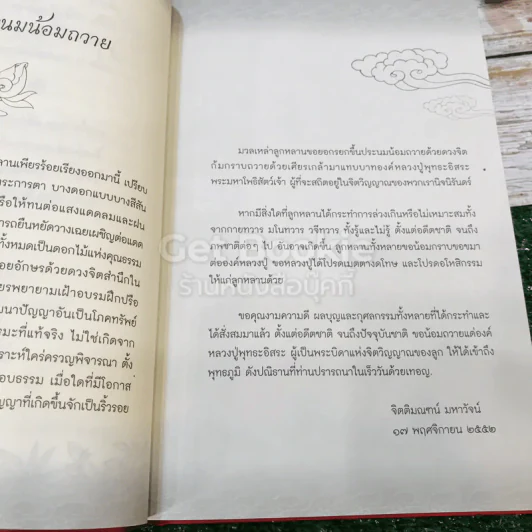 นมน้อมถวาย
ลานเพียรร้อยเรียงออกมานี้ เปรียบ
ระการตา บางดอกแบบบางสีสัน
รือให้ทนต่อแสงแดดลมและฝน
ารถยืนหยัดวางเฉยเผชิญต่อแดด
ทั้งหมดเป็นดอกไม้แห่งคุณธรรม
อยอักษรด้วยดวงจิตสำนึกใน
ยรพยายามเฝ้าอบรมฝึกปรือ
นาปัญญาอันเป็นโภคทรัพย์
มะที่แท้จริง ไม่ใช่เกิดจาก
ราะห์ใคร่ครวญพิจารณา ตั้ง
อบธรรม เมื่อใดที่มีโอกาส
ญาที่เกิดขึ้นจักเป็นริ้วรอย
มวลเหล่าลูกหลานขอยอกรอกขึ้นประนมน้อมถวายด้วยดวงจิต
ก้มกราบถวายด้วยเศียรเกล้ามาแทบบาทองค์หลวงปู่พุทธะอิสระ
พระมหาโพธิสัตว์เจ้า ผู้ที่จะสถิตอยู่ในจิตวิญญาณของพวกเรานิจนิรันดร์
หากมีสิ่งใดที่ลูกหลานได้กระทำการล่วงเกินหรือไม่เหมาะสมทั้ง
จากกายทวาร มโนทวาร วจีทวาร ทั้งรู้และไม่รู้ ตั้งแต่อดีตชาติ จนถึง
ภพชาติต่อๆ ไป อันอาจเกิดขึ้น ลูกหลานทั้งหลายขอน้อมกราบขอขมา
ต่อองค์หลวงปู่ ขอหลวงปู่ได้โปรดเมตตางดโทษ และโปรดอโหสิกรรม
ให้แก่ลูกหลานด้วย
ขอคุณงามความดี ผลบุญและกุศลกรรมทั้งหลายที่ได้กระทำและ
ได้สั่งสมมาแล้ว ตั้งแต่อดีตชาติ จนถึงปัจจุบันชาติ ขอน้อมถวายแด่องค์
หลวงปู่พุทธะอิสระ ผู้เป็นพระบิดาแห่งจิตวิญญาณของลูก ให้ได้เข้าถึง
พุทธภูมิ ดังปณิธานที่ท่านปรารถนาในเร็ววันด้วยเทอญ.
จิตติมณฑน์ มหาวัจน์
๑๗ พฤศจิกายน ๒๕๕๒
ร้านหนังสือบุ๊คกี้